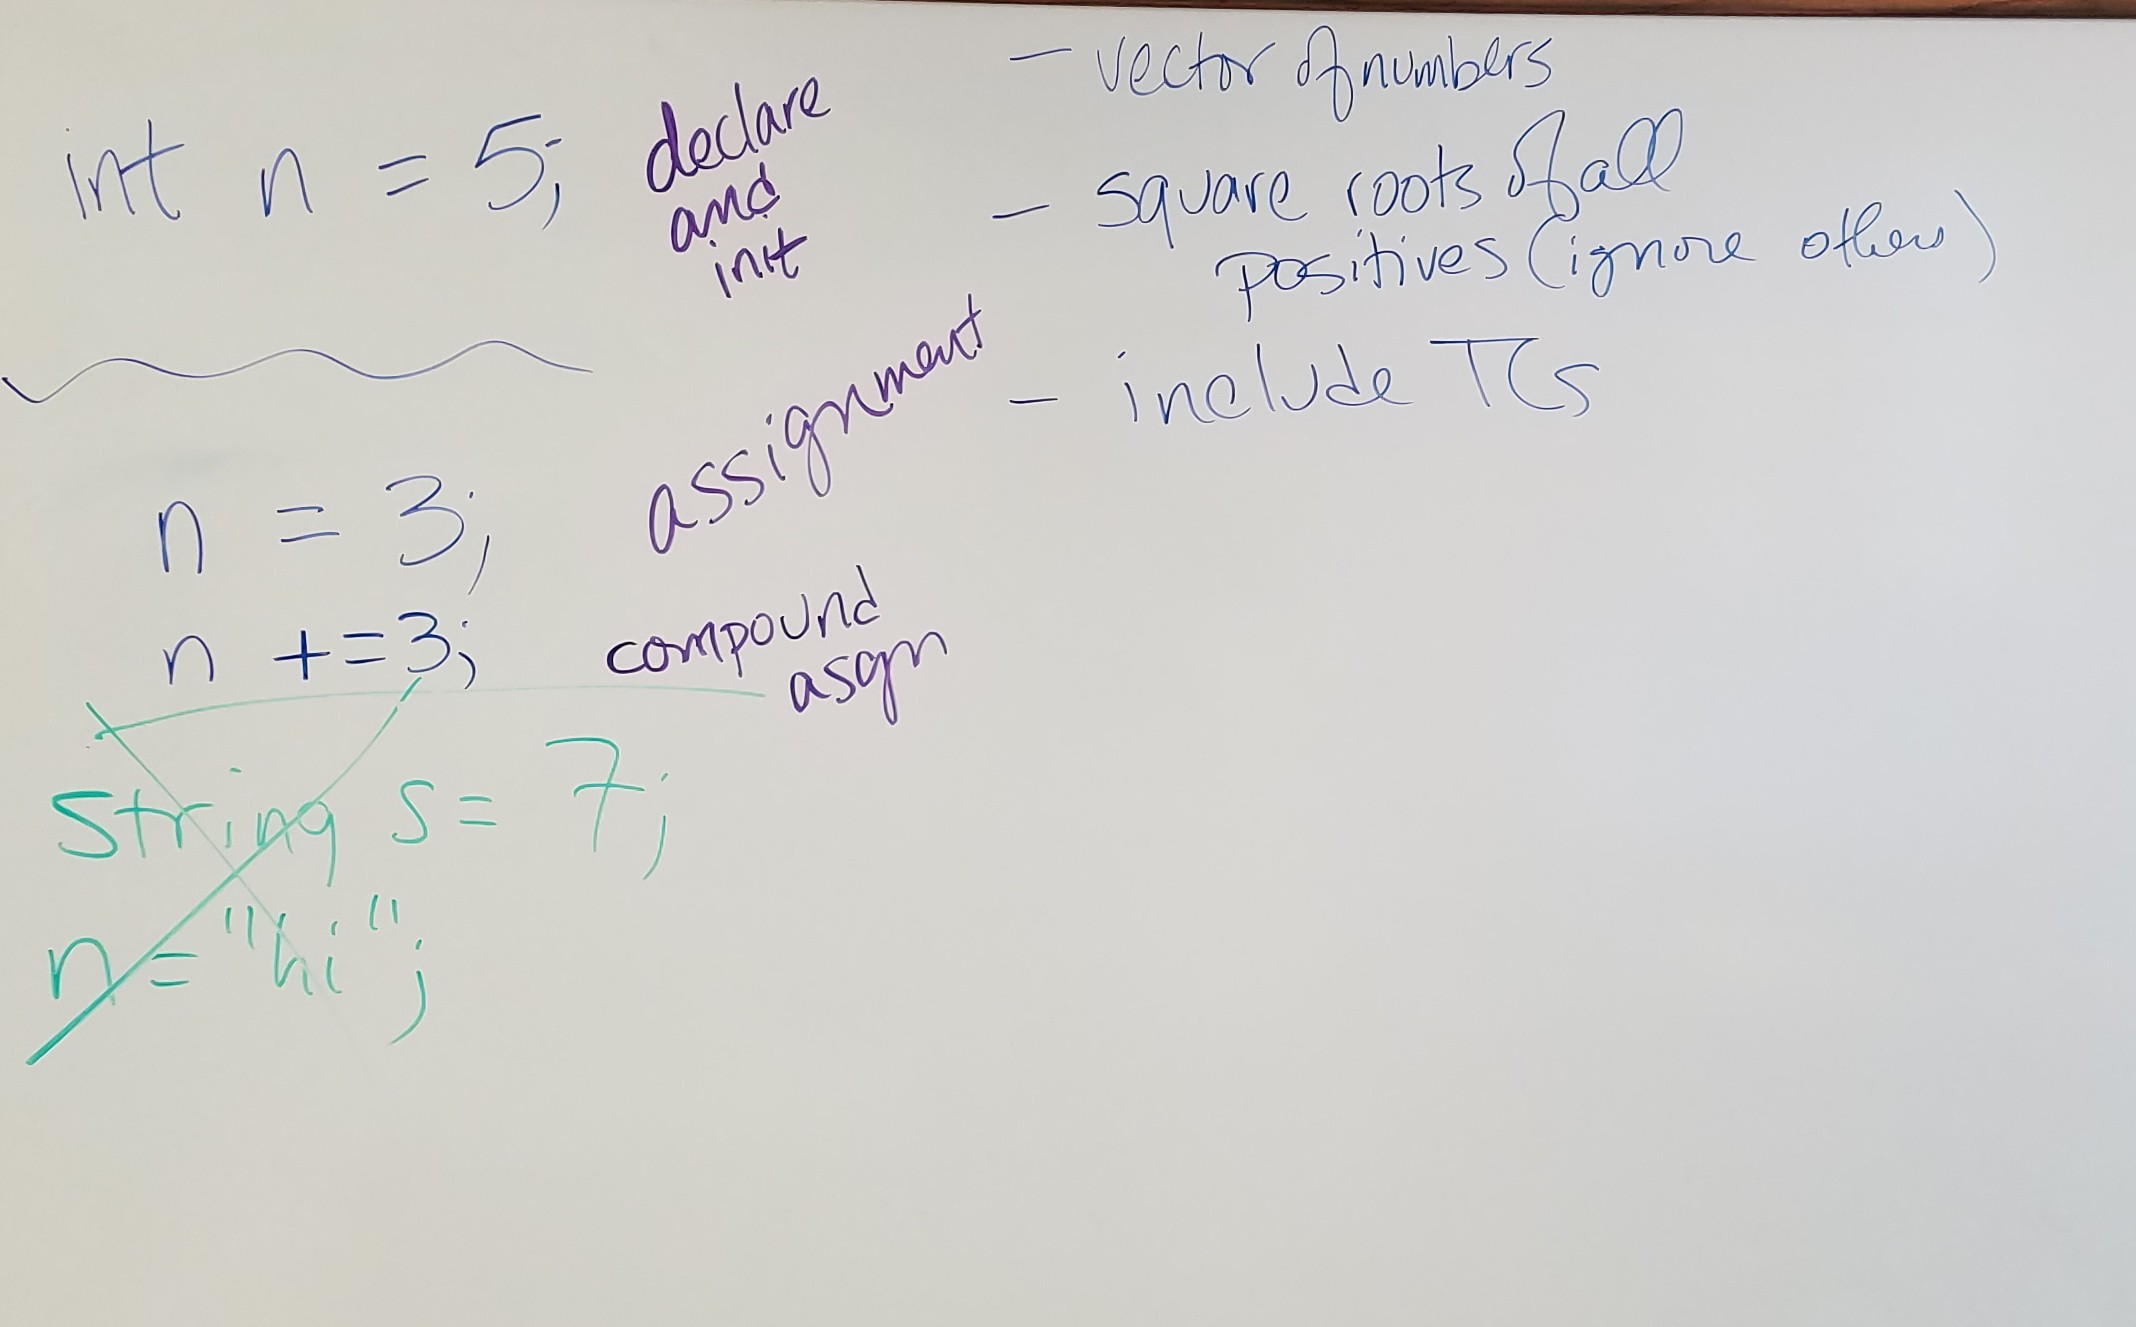 int n = 5;
declare
and
init
n = 3;
assignment
n += 3;
compound
asgn
string s = 7;
n = "hi";
- vector of numbers
- square roots of all
positives (ignore others)
- include TCs